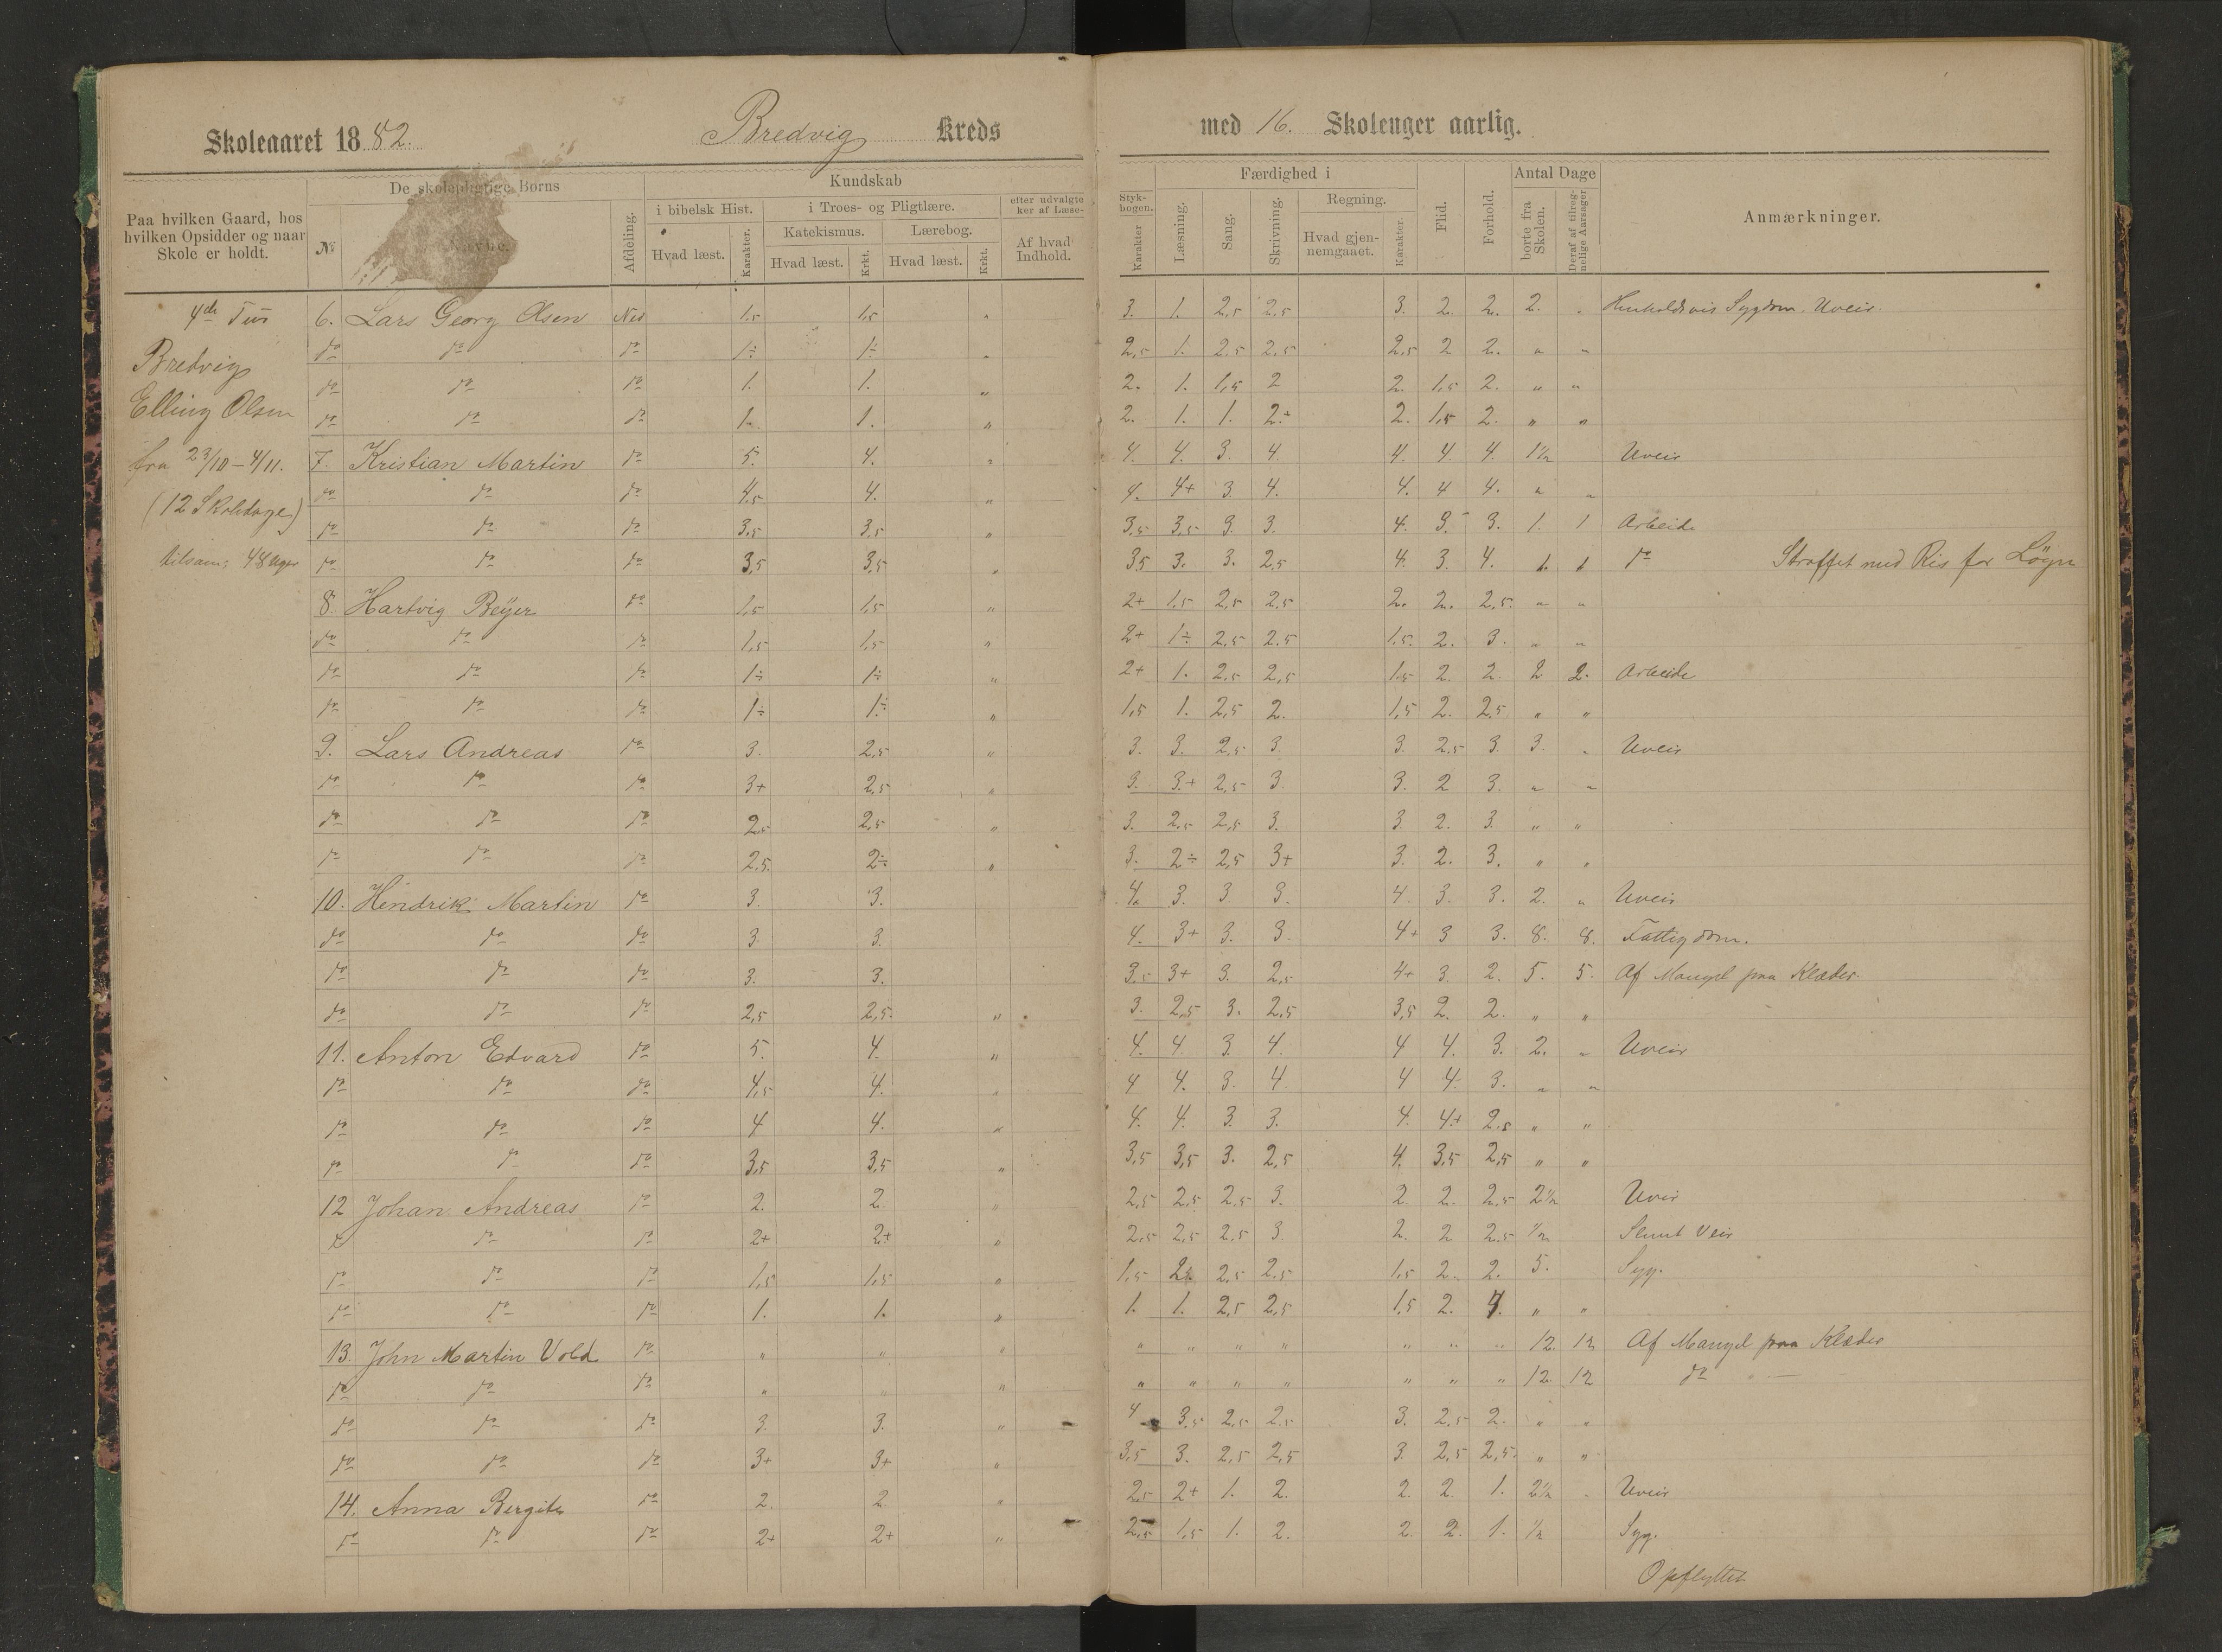 Skoleaaret 1882. Bredvig Kreds med 16. Skoleuger aarlig.
Paa hvilken Gaard, hos hvilken Opsidder og naar Skole er holdt.
De skolepligtige Børns
№ Navne. Afdeling.
Kundskab
i bibelsk Hist. i Troes- og Pligtlære. efter udvalgte ker af Læse-
Hvad læst. Karakter. Katekismus. Hvad læst. Krkt. Lærebog. Hvad læst. Krkt. Af hvad Indhold.
Styk- bogen. Karakter
Færdighed i
Læsning. Sang. Skrivning. Regning. Hvad gjen- nemgaaet. Karakter.
Flid. Forhold.
Antal Dage
borte fra Skolen. Deraf af tilreg- nelige Aarsager
Anmærkninger.
4de
Bredvig
Elling Olsen
fra 23/10 – 4/11.
(12 Skoledage)
tilsam; 48 Uger
6. Lars Georg Olsen Ned 1,5 1,5 „ 3. 1. 2,5 2,5 3. 2. 2. 2. „ Sygdom. Uveir.
do do do 1÷ 1÷ „ 2,5 1. 2.5 2,5 2,5 2 2. „ „
do do do 1. 1. „ 2. 1. 1,5 2 2. 1,5 2. „ „
do do do 1. 1. „ 2. 1. 1. 2+ 2. 1,5 2. „ „
7. Kristian Martin do 5. 4. „ 4. 4. 3. 4 4. 4 4. 1½ Uveir
do do do 4,5 4. „ 4. 4+ 3. 4. 4. 4 4. „ „
do do do 3,5 3,5 „ 3,5 3,5 3. 3. 4. 3. 3. 1. 1 Arbeide
do do do 3,5 3,5 „ 3,5 3. 3. 2,5 4. 3. 4. 1. 1 do Straffet med Ris for Løgn
8. Hartvig Beÿer do 1,5 1,5 „ 2+ 1,5 2,5 2,5 2. 2. 2,5. „ „
do do do 1,5 1,5 „ 2+ 1÷ 2,5 2.5 1,5. 2. 3. „ „
do do do 1÷ 1÷ „ 2+ 1. 2,5 2,5 1,5 2. 2. 2 2. Arbeide
do do do 1÷ 1÷ „ 1,5 1. 2,5 2. 1,5 2. 2,5 „ „
9. Lars Andreas do 3. 2,5 „ 3. 3. 2,5 3. 3. 2,5 3. 3. „ Uveir
do do do 3+ 2,5 „ 3. 3+ 2,5 3. 3. 2 3. „ „
do do do 2,5 2,5 „ 3. 2,5 2,5 3. 3. 2. 3. „ „
do do do 2.5. 2÷ „ 3. 2÷ 2,5 3+ 3. 2. 3. „ „
10. Hendrik Martin do 3. 3. 4. 3. 3. 3. 4. 3. 3. 2. „ Uveir
do do do 3. 3. 4. 3+ 3. 3. 4+ 3 3. 8. 8. Fattigdom.
do do do 3. 3. 3,5 3+ 3. 2,5 4+ 3. 2. 5. 5. Af Mangel paa Klæder.
do do do 2,5 2,5. „ 3. 2,5 3. 2,5 3,5 2. 2. „ „
11. Anton Edvard do 5. 4. „ 4. 4 3. 4. 4 4. 3. 2. „ Uveir
do do do 4,5 4. „ 4 4. 3. 4 4 4. 3. „ „
do do do 4 4. „ 4. 4. 3. 3. 4. 4+ 2.5 „ „
do do do 3,5 3,5 „ 3,5 3,5 3. 2,5 4. 3,5 2,5 „ „
12 Johan Andreas do 2. 2. „ 2,5 2,5 2,5 3. 2. 2. 2,5 2½ Uveir
do do do 2+ 2+ „ 2,5 2,5 2,5 3. 2. 2 2.5 ½ Slemt Veir
do do do 1,5 1,5 „ 1,5 2. 2,5 2,5 1,5 2. 2. 5. Syg.
do do do 1. 1. „ 1. 1. 2,5 2,5 1,5 2. „ „
13. John Martin Vold do „ „ „ „ „ „ „ „ „ „ 12. 12 Af Mangel paa Klæder
do do do „ „ „ „ „ „ „ „ „ „ 12. 12 do
do do do 3. 3. „ 4 3.5 2,5 2.5 3. 2,5 2. „ „
do do do 3+ 3+ „ 3,5 3. 2,5 2,5 3. 2,5 2,5. „ „
14. Anna Bergite do 2. 2 „ 2,5 2+ 1. 2. 2. 2. 1. 2½ „ Uveir
do do do 2+ 2+ „ 2,5 1,5 1. 2. 2. 2. 1. ½ Syg.
Opflyttet